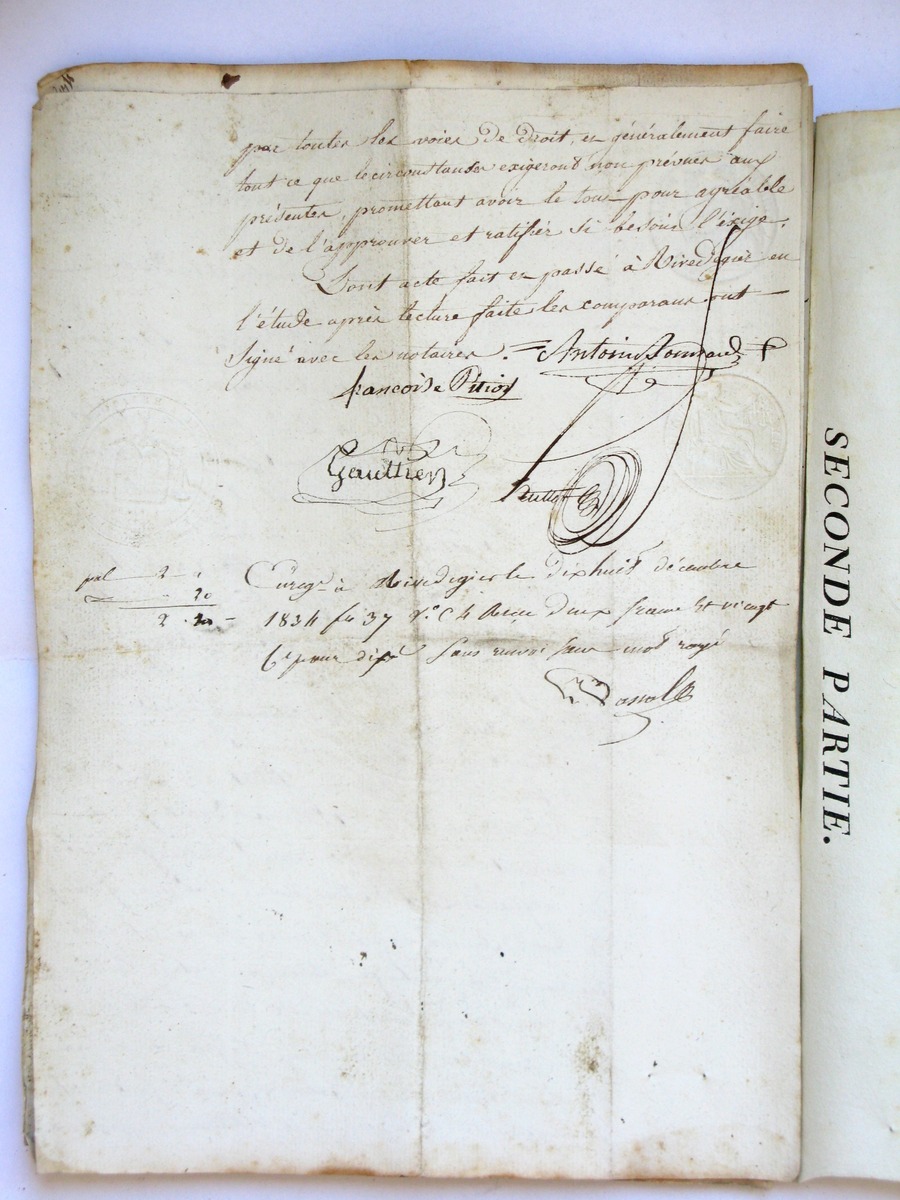 par toutes les voies de droit, et généralement faire
tout ce que le circonstances exigeront non prévues aux
présentes, promettant avoir le tout pour agréable
et de l'approuver et ratifier si besoin l'exige.
Dont acte fait et passé à Rivedigier en
l'étude après lecture faite les comparans ont
signé avec les notaires.
Antoine
françoise Pitiot
Gaultier
pal 2
20
2 . 20
Enreg à Rivedigier le dixhuit décembre
1834 fo 37 Vo C 4 Reçu deux francs et vingt
Ces pour dixe Sans renvoi sans mot rayé
SECONDE PARTIE.